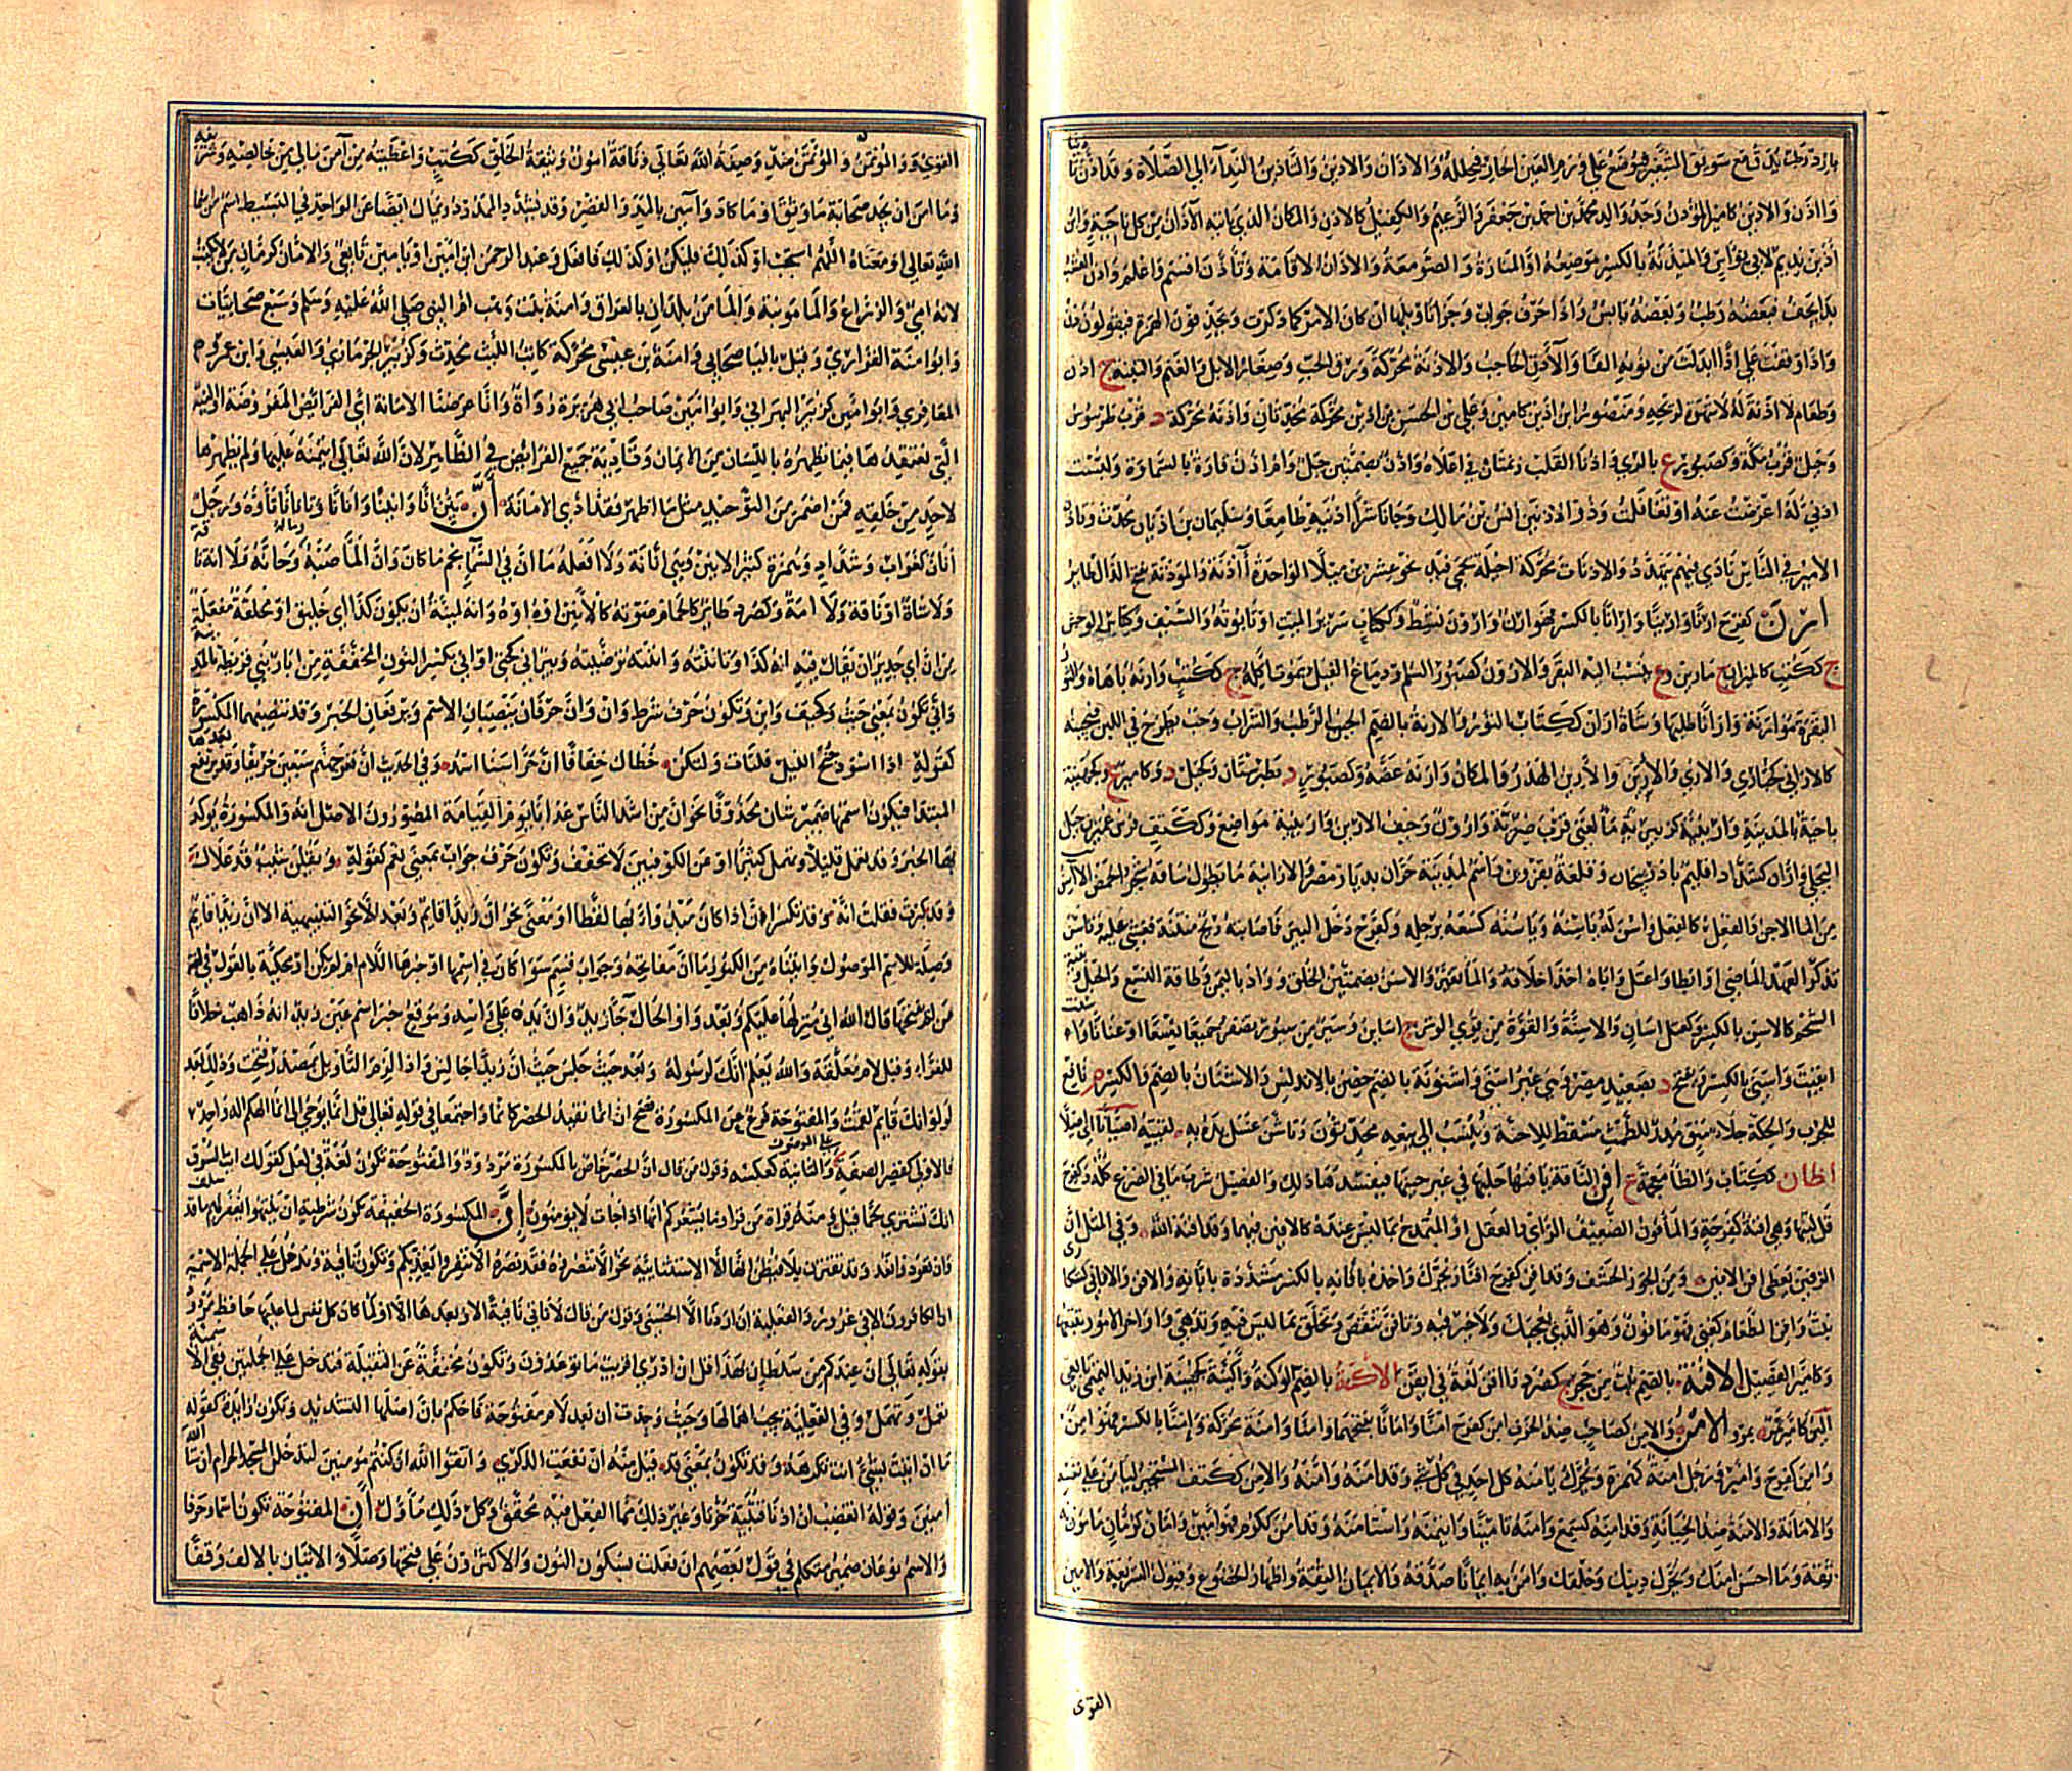 بارد رطب يدق مع سويق الشعير فيوضع على ورم العين الحار فيحلله والاذان والاذين والتاذين النداء الى الصلاة وقد اذن تاذينا
واذن والاذين كامير المؤذن وجد والد محمد بن احمد بن جعفر والزعيم والكفيل كالاذن والمكان الذي ياتيه الاذان من كل ناحية وابن
اذين نديم لابي نواس والمئذنة بالكسر موضعه او المنارة والصومعة والاذان الاقامة وتاذن اقسم واعلم واذن العشب
بدا يجف فبعضه رطب وبعضه يابس واذا حرف جواب وجزاء تاويلها ان كان الامر كما ذكرت ويحذفون الهمزة فيقولون ذن
واذا وقفت على اذا ابدلت من نونه الفا والآذن الحاجب والاذنة محركة ورق الحب وصغار الابل والغنم والتبنة ج اذن
وطعام لا اذنة له لا شهوة لريحه ومنصور ابن اذين كامير وعلي بن الحسن بن اذين محركة محدثان واذنة محركة د قرب طرسوس
وجبل قرب مكة وكصبور ع بالري واذنا القلب زنمتان في اعلاه واذن بضمتين جبل وام اذن قارة بالسماوة ولبست
اذني له اعرضت عنه او تغافلت وذو الاذنين انس بن مالك وجاء ناشرا اذنيه طامعا وسليمان بن اذنان محدث وتاذن
الامير في الناس نادى فيهم بتهدد والاذنات محركة اخيلة بحمى فيد نحو عشرين ميلا الواحدة اذنة والموذنة بفتح الذال طائر
ارن كفرح ارنا وارينا وارانا بالكسر فهو ارن وارون نشط وككتاب سرير الميت او تابوته والسيف وكناس الوحش
ج ككتب كالميران ج مارين وع ينسب اليه البقر والارون كصبور السم ودماغ الفيل يموت اكله ج ككتب وارنه باهاه والثور
البقرة موارنة وارانا طلبها وشاة اران ككتاب الثور والارنة بالضم الجبن الرطب والسراب وحب يطرح في اللبن فيجبنه
كالاراني كحبارى والارني والاربن والارين الهدر والمكان وارنه عضه وكصبور د بطبرستان وكجبل د وكامير ع وكجهينة
ناحية بالمدينة وارينية كزبيرية ما لغني قرب ضرية وارون وخيف الارين وارينية مواضع وككتف فرس عمير بن جبل
البجلي واران كشداد اقليم باذربيجان وقلعة بقزوين واسم لمدينة حران بديار مضر والارانية ما يطول ساقه من شجر الحمض الآسن
من الماء الاجن والفعل كالفعل واسن له ياسنه وياسنه كسعه برجله وكفرح دخل البئر فاصابته ريح منتنة فغشي عليه وتاسن
تذكر العهد الماضي او ابطا واعتل واباه اخذ اخلاقه والماء تغير والاسن بضمتين الخلق وواد باليمن وطاقة النسع والحبل وبقية
الشحم كالاسن بالكسر كعتل اسان والاسينة والقوة من قوى الوتر ج اساين وسير من سيور تضفر جميعا نسعا او عنانا
اثبت واسنى بالكسر ويفتح د بصعيد مصر وهي غير اسنى واشتونة بالضم حصن بالاندلس والاشنان بالضم والكسر م نافع
للجرب والحكة جلاء منق مدر للطمث مسقط للاجنة وينسب الى بيعه محدثون وتاشن غسل يده به لقيته اصيانا الى ميلا
اظان ككتاب والظاء معجمة ع افن الناقة يافنها حلبها في غير حينها فيفسدها ذلك والفصيل شرب ما في الضرع كله وكفرح
قل لبنها وهي افنة كفرحة والمافون الضعيف الراي والعقل او المتمدح بما ليس عنده كالافين فيهما وقد افنه الله وفي المثل ان
الرقين يعطي افن الافين ومن الجوز الحشف وقد افن كفرح افنا ويحرك واخذه بافانه بالكسر مشددة بابانه والافن والافاني كسكارى
نبت وافن الطعام كعني فهو مافون وهو الذي يعجبك ولا خير فيه وتافن تنقص وتخلق بما ليس فيه وتدهى واواخر الامور تتبعها
وكامير الفصيل الاقنة بالضم بيت من حجر ج كصرد واقن لغة في ايقن الاكنة بالضم الوكنة واكينة كجهينة ابن زيد التميمي تابعي
آلين كامير بمرو الامن والامن كصاحب ضد الخوف امن كفرح امنا وامانا بفتحهما وامنا وامنة محركة وامنا بالكسر فهو امن
وامن كفرح وامير ورجل امنة كهمزة ويحرك يامنه كل احد في كل شيء وقد امنه وامنه والامن ككتف المستجير ليامن على نفسه
والامانة والامنة ضد الخيانة وقد امنه كسمع وامنه تامينا وايتمنه واستامنه وقد امن ككرم فهو امين وامان كرمان مامون به
ثقة وما احسن امنك ويحرك دينك وخلقك وامن به ايمانا صدقه والايمان الثقة واظهار الخضوع وقبول الشريعة والامين
القوى
القوي والمؤتمِن والمؤتمَن ضد وصفة الله تعالى وناقة امون وثيقة الخلق ككتب واعطيته من امن مالي من خالصه وشريفه
وما امن ان يجد صحابة ما وثق او ما كاد وآمين بالمد والقصر وقد يشدد الممدود ويمال ايضا عن الواحدي في البسيط اسم من اسماء
الله تعالى او معناه اللهم استجب او كذلك فليكن او كذلك فافعل وعبد الرحمن ابن امين او يامين تابعي والامان كرمان من لا يكتب
لانه امي والزراع والمامونية والمامن بلدان بالعراق وامنة بنت وهب ام النبي صلى الله عليه وسلم وسبع صحابيات
وابو امنة الفزاري وقيل بالياء صحابي وامنة بن عيسى محركة كاتب الليث محدث وكزبير الحرمازي والعبسي وابن عمرو
المعافري وابو امين كزبير البهراني وابو امين صاحب ابي هريرة رواة وانا عرضنا الامانة اي الفرائض المفروضة او النية
التي يعتقدها فيما يظهره باللسان من الايمان وتاديه جميع الفرائض في الظاهر لان الله تعالى ائتمنه عليها ولم يظهرها
لاحد من خلقه فمن اضمر من التوحيد مثل ما اظهر فقد ادى الامانة ان يئن انا وانينا وانانا وتانانا تاوه ورجل
انان كغراب وشداد وهمزة كثير الانين وهي انانة ولا افعله ما ان في السماء نجم ما كان وان الماء صبه وماله حانة ولا انة ناقة
ولا شاة او ناقة ولا امة وكصرد طائر كالحمام صوته كالانين اوه اوه وانه لمئنة ان يكون كذا اي خليق او مخلقة مفعلة
من ان اي جدير ان يقال فيه انه كذا وتاننته واننته ترضيته وبئر انى كحتى او انى بكسر النون المخففة من ابار بني قريظة بالمدينة
وانى تكون بمعنى حيث وكيف واين وتكون حرف شرط وان وان حرفان ينصبان الاسم ويرفعان الخبر وقد تنصبهما المكسورة
كقوله اذا اسود جنح الليل فلتات ولتكن خطاك خفافا ان حراسنا اسدا وفي الحديث ان قعر جهنم سبعين خريفا وقد يرتفع بعدها
المبتدا فيكون اسمها ضمير شان محذوفا نحو ان من اشد الناس عذابا يوم القيامة المصورون الاصل انه والمكسورة يوكد
بها الخبر وقد تخفف فتعمل قليلا وتهمل كثيرا وعن الكوفيين لا تخفف وتكون حرف جواب بمعنى نعم كقوله ويقلن شيب قد علاك
وقد كبرت فقلت انه وقد تكسر ان اذا كان مبدوا بها لفظا او معنى نحو ان زيدا قايم وبعد الا التنبيهية الا ان زيدا قايم
وصلة للاسم الموصول واتيناه من الكنوز ما ان مفاتحه وجواب قسم سواء كان في اسمها او خبرها اللام او لم يكن او محكية بالقول في لغة
من لم يفتحها قال الله اني منزلها عليكم وبعد واو الحال جاء زيد وان يده على راسه وموقع خبر اسم عين زيد انه ذاهب خلافا
للفراء وقبل لام معلقة والله يعلم انك لرسوله وبعد حيث جلس حيث ان زيدا جالس واذا لزم التاويل بمصدر فتحت وذلك بعد
لو لو انك قايم لقمت والمفتوحة فرع عن المكسورة فصح ان انما تفيد الحصر كانما واجتمعا في قوله تعالى قل انما يوحى الي انما الهكم اله واحد
فالاولى لقصر الصفة على الموصوف والثانية كعكسه وقول من قال ان الحصر خاص بالمكسورة مردود والمفتوحة تكون لغة في لعل كقولك ايت السوق
انك تشتري لحما قيل ومنه قراة من قرا وما يشعركم انها اذا جات لا يومنون ان المكسورة الخفيفة تكون شرطية ان ينتهوا يغفر لهم ما قد سلف
وان تعودوا نعد وقد تقترن بلا فيظن انها الا الاستثنائية نحو الا تنصروه فقد نصره الا تنفروا يعذبكم وتكون نافية وتدخل على الجملة الاسمية
ان الكافرون الا في غرور والفعلية ان اردنا الا الحسنى وقول من قال لا تاتي نافية الا وبعدها الا او لما كان كل نفس لما عليها حافظ مردود
بقوله تعالى ان عندكم من سلطان بهذا قل ان ادري اقريب ما توعدون وتكون مخففة عن الثقيلة فتدخل على الجملتين ففي الاسمية
تعمل وتهمل وفي الفعلية يجب اهمالها وحيث وجدت ان بعد لام مفتوحة فاحكم بان اصلها التشديد وتكون زايدة كقوله
ما ان اتيت بشيء انت تكرهه وقد تكون بمعنى قد قيل منه ان نفعت الذكرى واتقوا الله ان كنتم مومنين لتدخلن المسجد الحرام ان شاء الله
امنين وقوله اتغضب ان اذنا قتيبة حزتا وغير ذلك مما الفعل فيه محقق وكل ذلك ماول ان المفتوحة تكون اسما وحرفا
والاسم نوعان ضمير متكلم في قول بعضهم ان فعلت بسكون النون والاكثرون على فتحها وصلا والاتيان بالالف وقفا